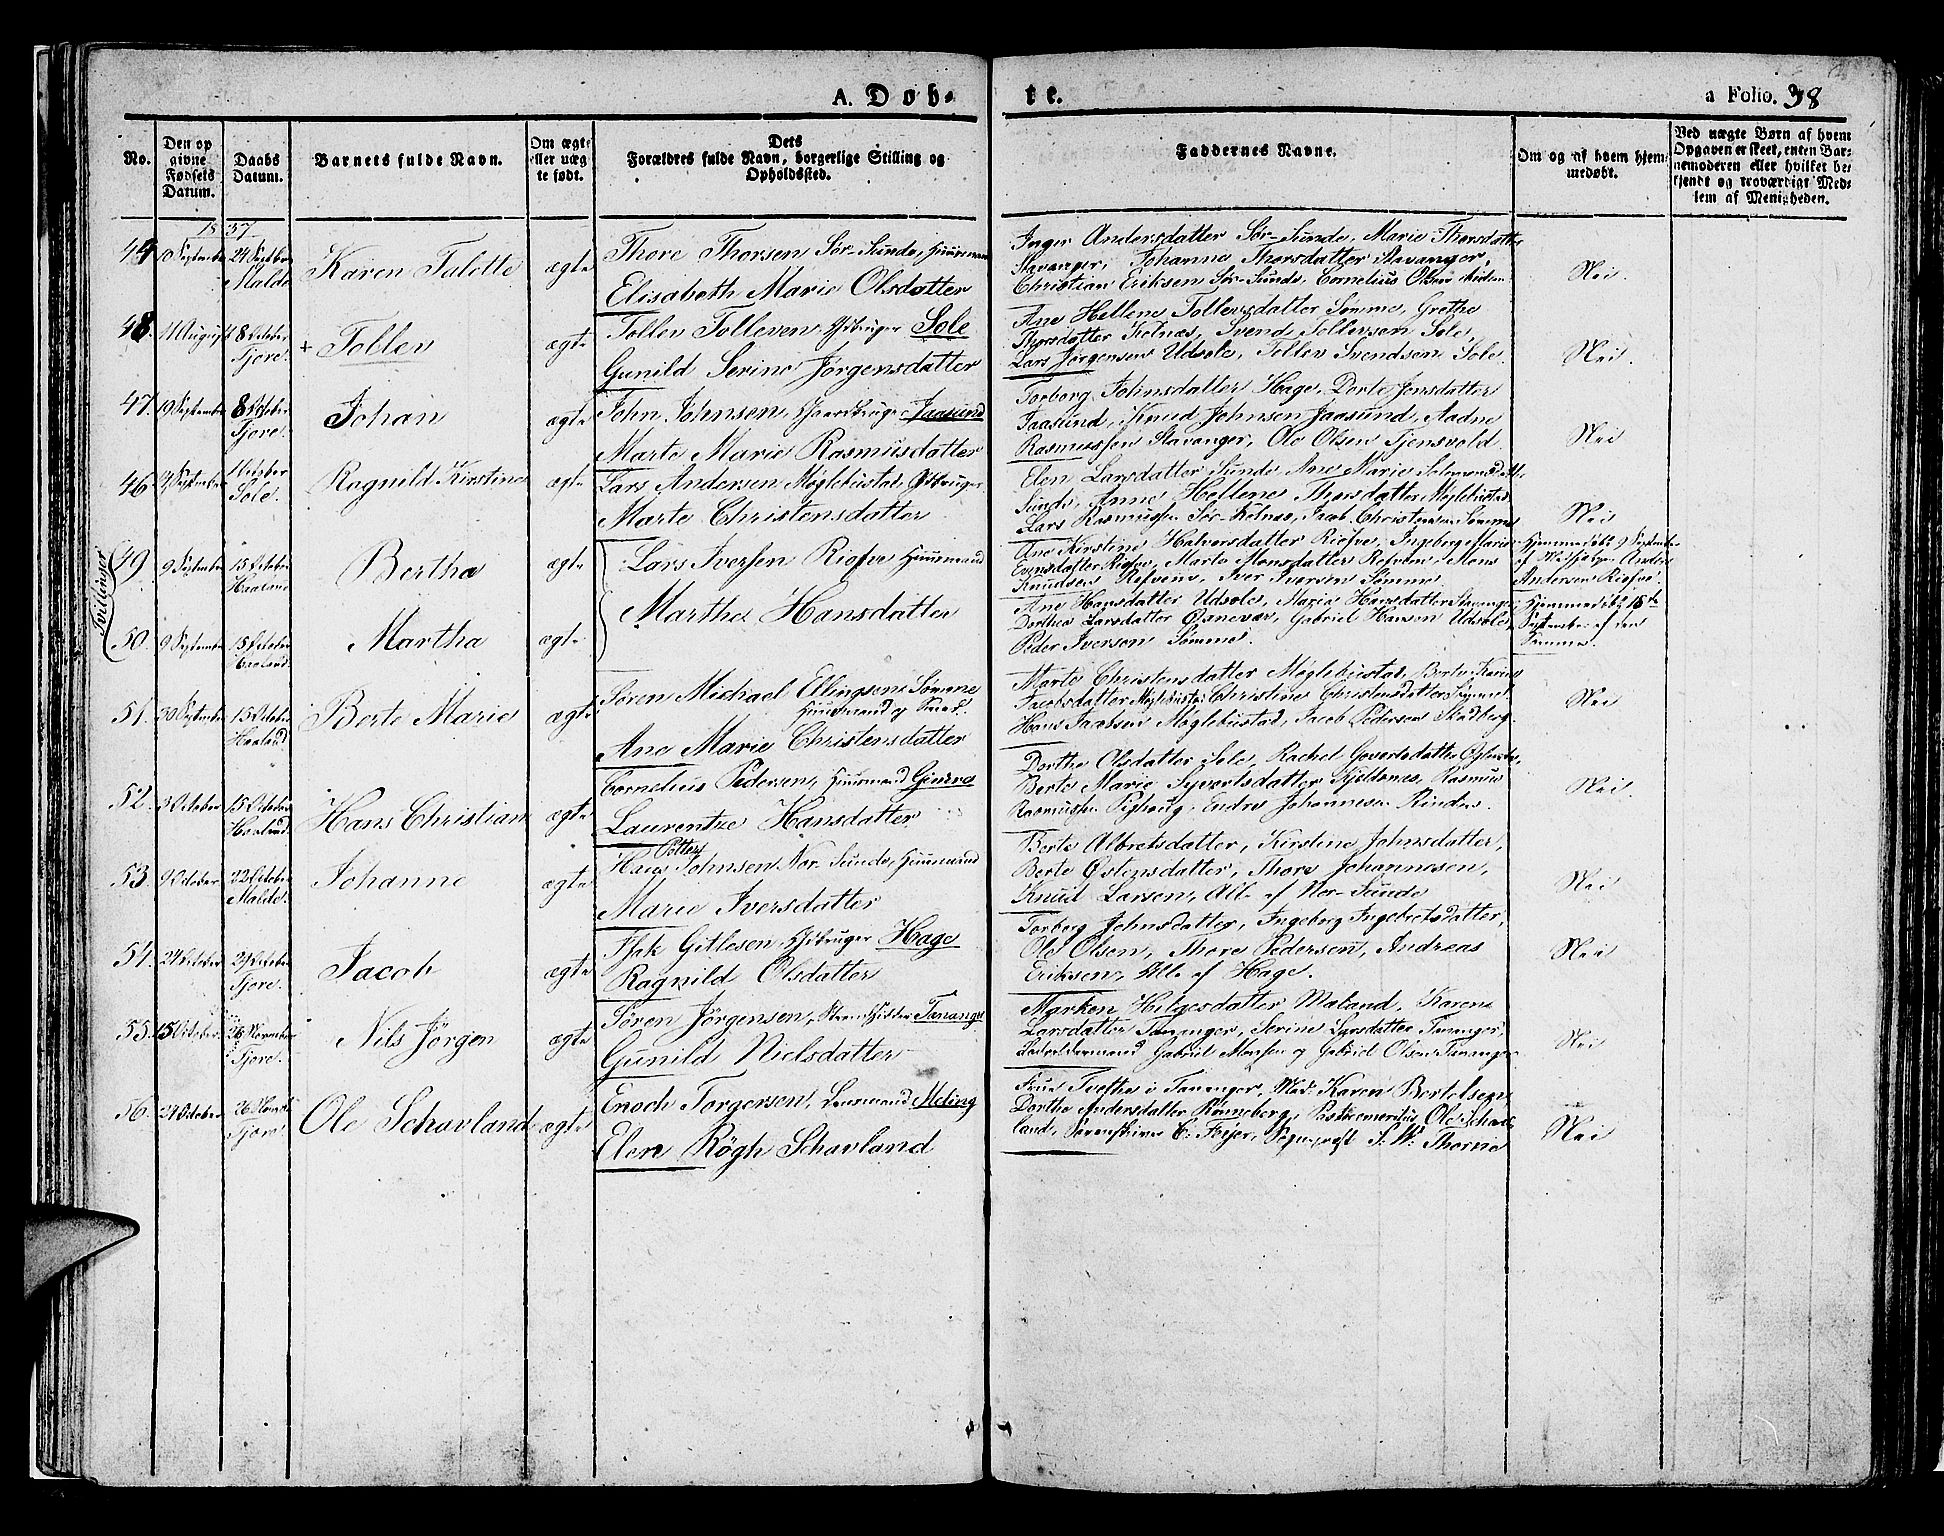 A. Døb-
te.
a Folio. 38
No.
Den op
givne
Fødsels
Datum.
Daabs
Datum.
Barnets fulde Navn.
Om ægte
eller uæg
te født.
Dets
Forældres fulde Navn, borgerlige Stilling og
Opholdssted.
Faddernes Navne.
Om og af hvem hjem-
medøbt.
Ved uægte Børn af hvem
Opgaven er skeet, enten Bar-
nemoderen eller hvilket be-
kjendt og troværdigt Med-
lem af Menigheden.
1837
44. 10 September 24 Septber Malde Karen Talette ægte
Thore Thorsen Sør-Sunde, Huusmand
Elisabeth Marie Olsdatter
Inger Andersdatter Sør-Sunde, Marie Thorsdatter
Stavanger, Johanne Thorsdatter Stavanger,
Christian Eriksen Sør-Sunde, Cornelius Olsen
Nei.
48. 11 August 8 October Tjore. + Tollev ægte
Tollev Tollevsen Sole
Gunild Serine Jørgensdatter
Ane Hellene Tollevsdatter Sømme, Grethe
Thorsdatter Kolnæs, Svend Tollevsen Sole,
Lars Jørgensen Udsole, Tollev Svendsen Sole.
Nei.
47. 19 September 8 October Tjore. Johan ægte
John Johnsen, Gaardbruger Jaasund
Marte Marie Rasmusdatter
Torborg Johnsdatter Hage, Dorte Jensdatter
Jaasund, Knud Johnsen Jaasund, Aadne
Rasmussen Stavanger, Ole Olsen Tjensvold
Nei
46 September October Sole. Ragnild Kirstine ægte
Lars Andersen Møglebustad Gbruger.
Marte Christensdatter
Elen Larsdatter Sunde Ane Marie
Sunde, Anne Hellene Thorsdatter Møglebustad
Lars Rasmussen Sør-Kolnæs, Jacob Christensen Sømme
Nei
Tvillinger
49. 9 September 15 October Haaland Bertha ægte
Lars Iversen Riofve Huusmand
Marthe Hansdatter
Ane Kirstine Halversdatter Riofve, Ingeborg Marie
Evensdatter Riofve, Marte Monsdatter Refvem, Mons
Knudsen Refvem, Iver Iversen Sømme.
Hjemmedøbt 9 September
af Andør
Andersen Riofve.
50. 9 September 15 October Haaland. Martha ægte
Ane Hansdatter Udsole, Marie Hansdatter Stavanger,
Dorthea Larsdatter Osnevar, Gabriel Hansen Udsole,
Peder Iversen Sømme.
Hjemmedøbt 15de
September af den
Samme.
51. 30 September 15 October Haaland Berte Marie ægte
Søren Michael Ellingsen Sømme
Huusmand og Smed.
Ane Marie Christensdatter
Marte Christensdatter Møglebustad, Berte Karine
Jacobsdatter Møglebustad Christine Christensdatter Sømme
Hans Jacobsen Møglebustad, Jacob Pedersen Skadberg.
Nei
52. 3 October 15 October Haaland. Hans Christian ægte
Cornelius Pedersen, Huusmand Gimre
Laurentze Hansdatter
Dorthe Olsdatter Sole, Rachel Govertsdatter
Berte Marie Syvertsdatter Kjeldenæs, Rasmus
Rasmussen Endre Johannesen Rindør.
Nei.
53. 9 October 22 October Malde. Johanne ægte
Potter
Hans Johnsen Nor-Sunde, Huusmand
Marie Iversdatter
Berte Albretsdatter, Kirstine Johnsdatter,
Berte Østensdatter, Thore Johannesen,
Knud Larsen, Alle af Nor-Sunde
Nei
54. 24 October 29 October Tjore. Jacob ægte
Isak Gitlesen Gbruger Hage
Ragnild Olsdatter
Torborg Johnsdatter, Ingeborg Ingebretsdatter,
Ole Olsen, Thore Pedersen, Andreas
Eriksen, Alle af Hage.
Nei
55. 15 October 26 November Tjore. Nils Jörgen ægte
Sören Jörgensen, Tananger
Gunild Nielsdatter
Marken Helgesdatter Maland, Karen
Larsdatter Tananger, Serine Larsdatter Tananger,
Gabriel Monsen og Gabriel Olsen Tananger
Nei
56. 24 October 26 Novembr Tjore Ole Schavland ægte
Enoch Torgersen, Leensmand Meling
Elen Rögh Schavland
Frue Tvethe i Tananger, Mad: Karen Bertelsen
Dorthe Andersdatter Rönneberg, Ole Schav-
land, Sorenskriver C. Feyer, Sogneprest S. W. Thorne
Nei